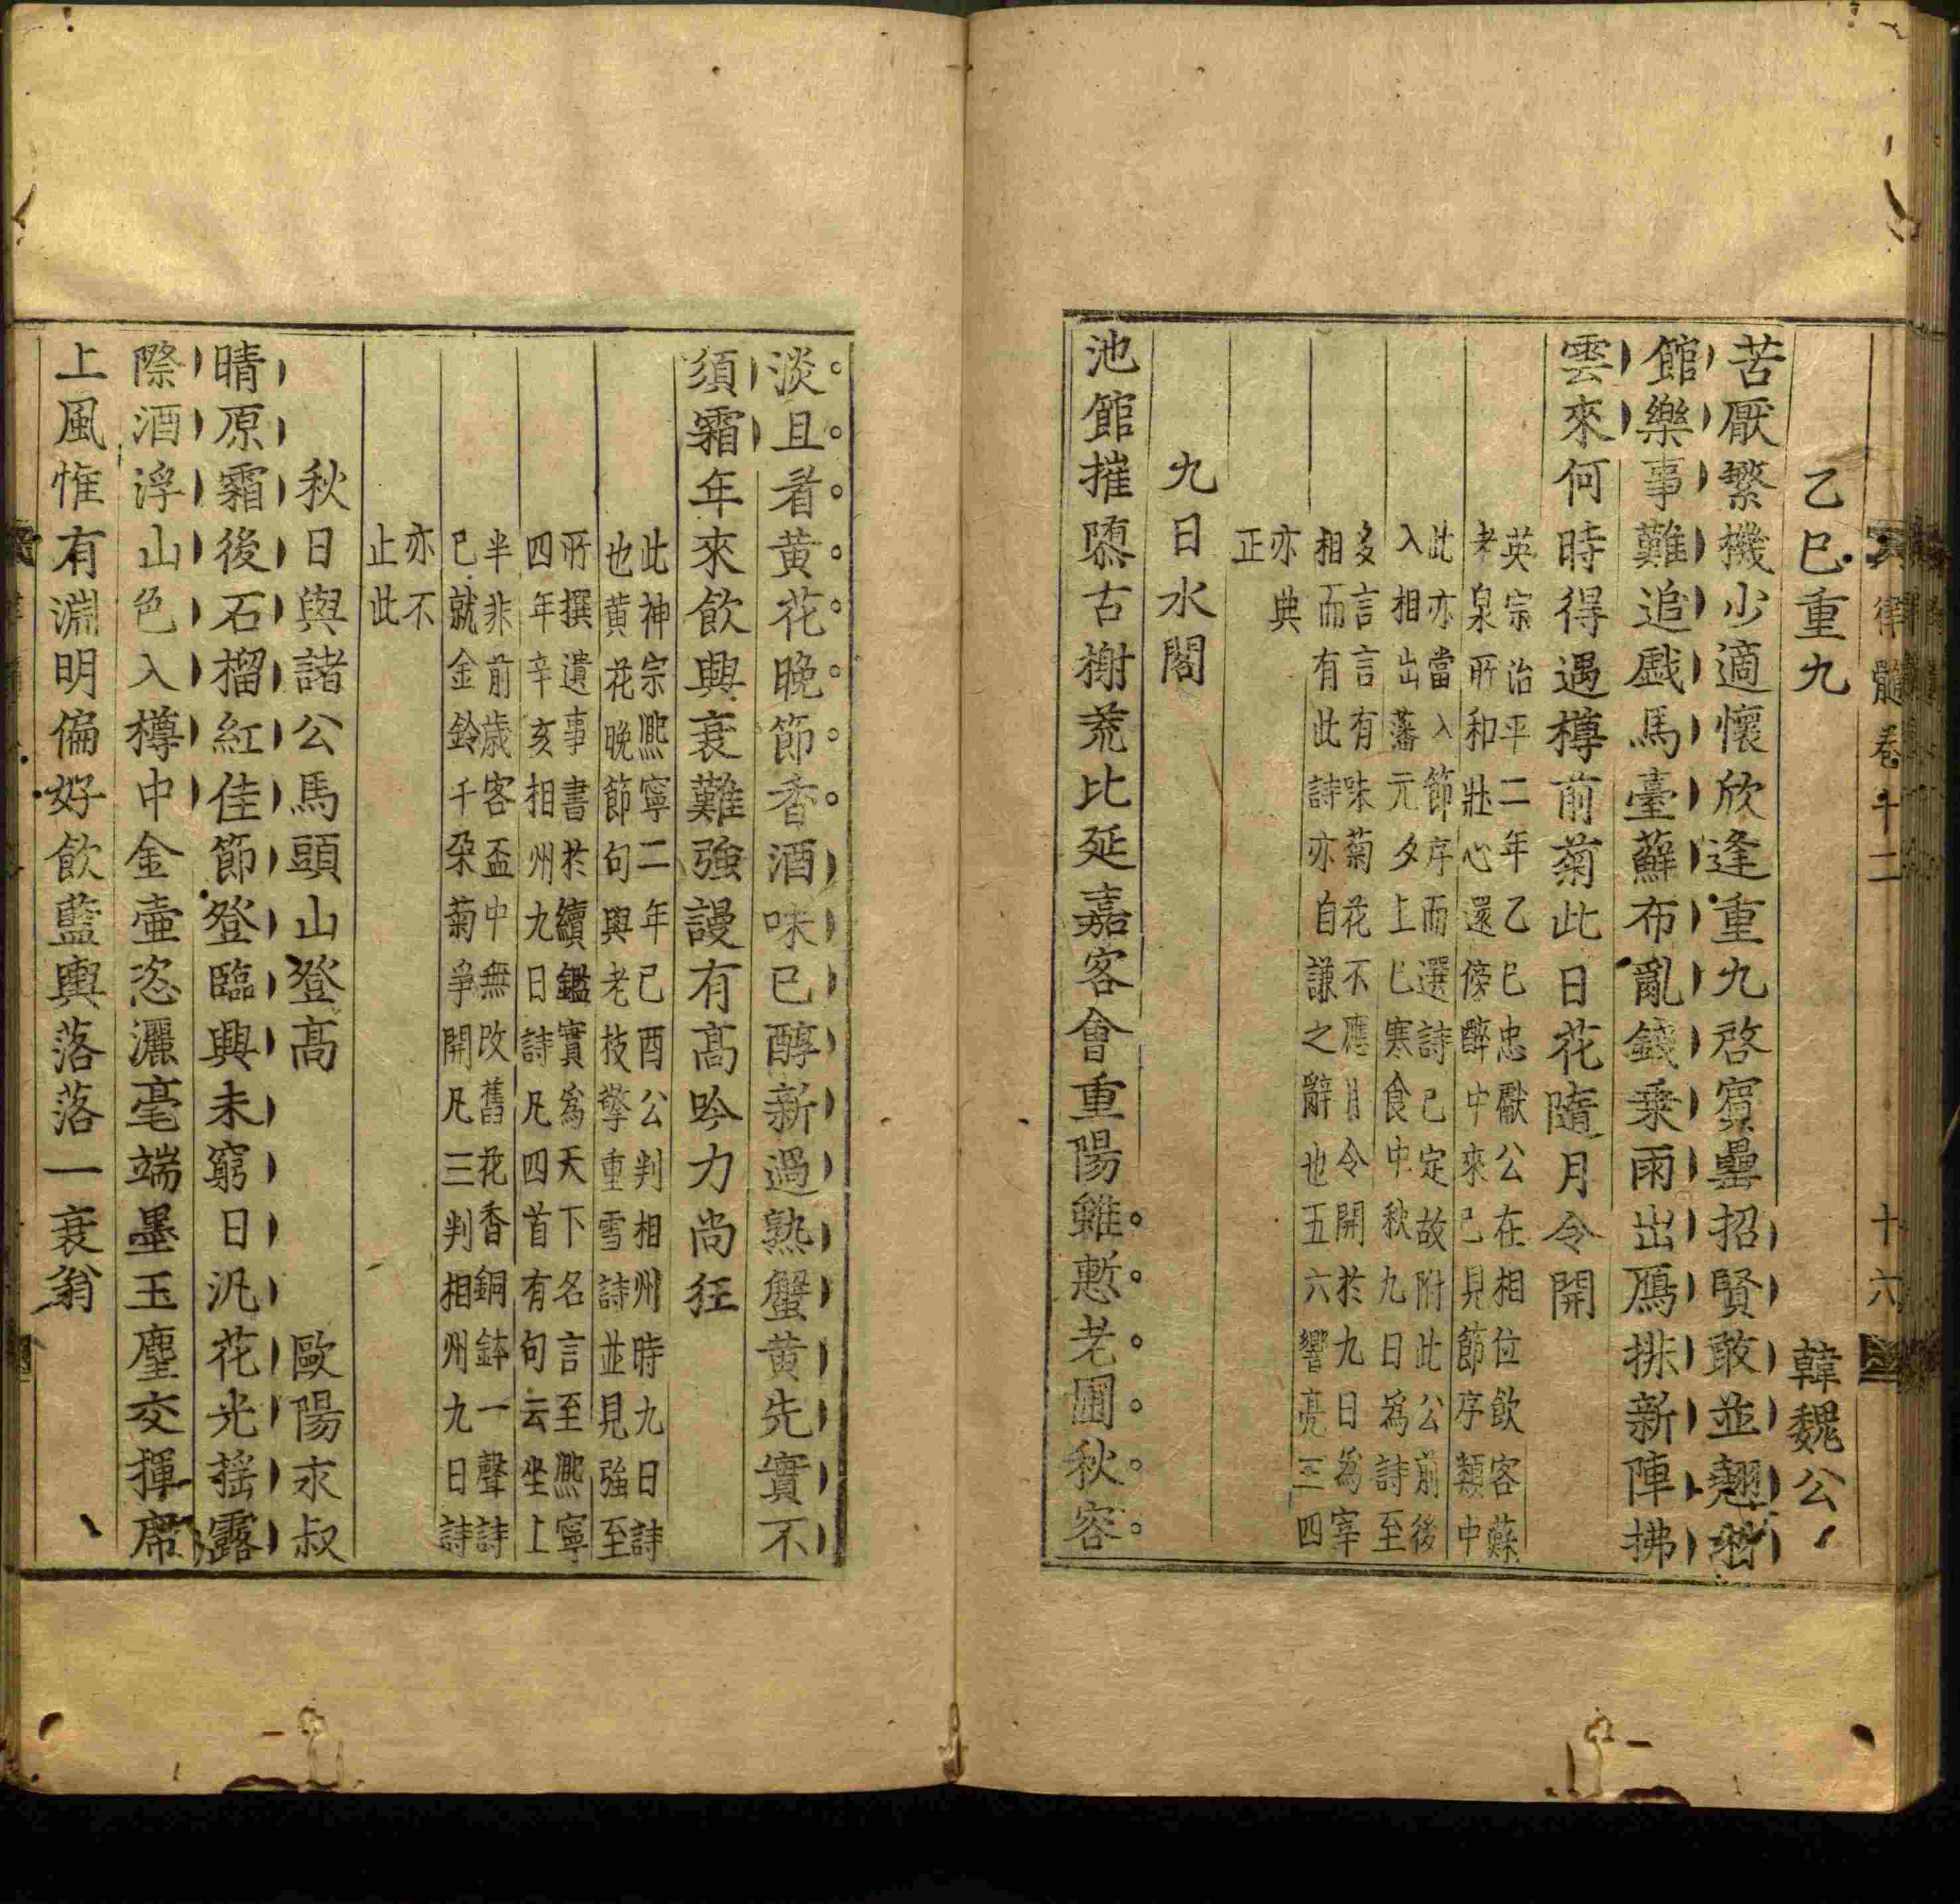 律髓卷十二 十六
乙巳重九 韓魏公
苦厭繁機少適懷欣逢重九啓賓罍招賢敢並翹
館樂事難追戲馬臺蘚布亂錢乗雨出鴈排新陣拂
雲來何時得遇樽前菊此日花隨月令開
英宗治平二年乙巳忠獻公在相位飲客蘇
老泉所和壯心還傍醉中來已見節序類中
此亦當入節序而選詩已定故附此公前後
入相出藩元夕上巳寒食中秋九日為詩至
多言言有味菊花不應月令開於九日為宰
相而有此詩亦自謙之辭也五六響亮三四
亦典
正
九日水閣
池館摧隳古榭荒比延嘉客會重陽雖慙老圃秋容
淡且看黄花晚節香酒味已醇新過熟蟹黄先實不
須霜年來飲興衰難強謾有髙吟力尚狂
此神宗熈寧二年已酉公判相州時九日詩
也黄花晚節句與老枝擎重雪詩並見強至
所撰遺事書於續鑑實為天下名言至熈寧
四年辛亥相州九日詩凡四首有句云坐上
半非前歲客盃中無改舊花香銅鉢一聲詩
已就金鈴千朶菊爭開凡三判相州九日詩
亦不
止此
秋日與諸公馬頭山登髙 歐陽永叔
晴原霜後石榴紅佳節登臨興未窮日汎花光揺露
際酒浮山色入樽中金壷恣灑毫端墨玉麈交揮席
上風惟有淵明偏好飲藍輿落落一衰翁